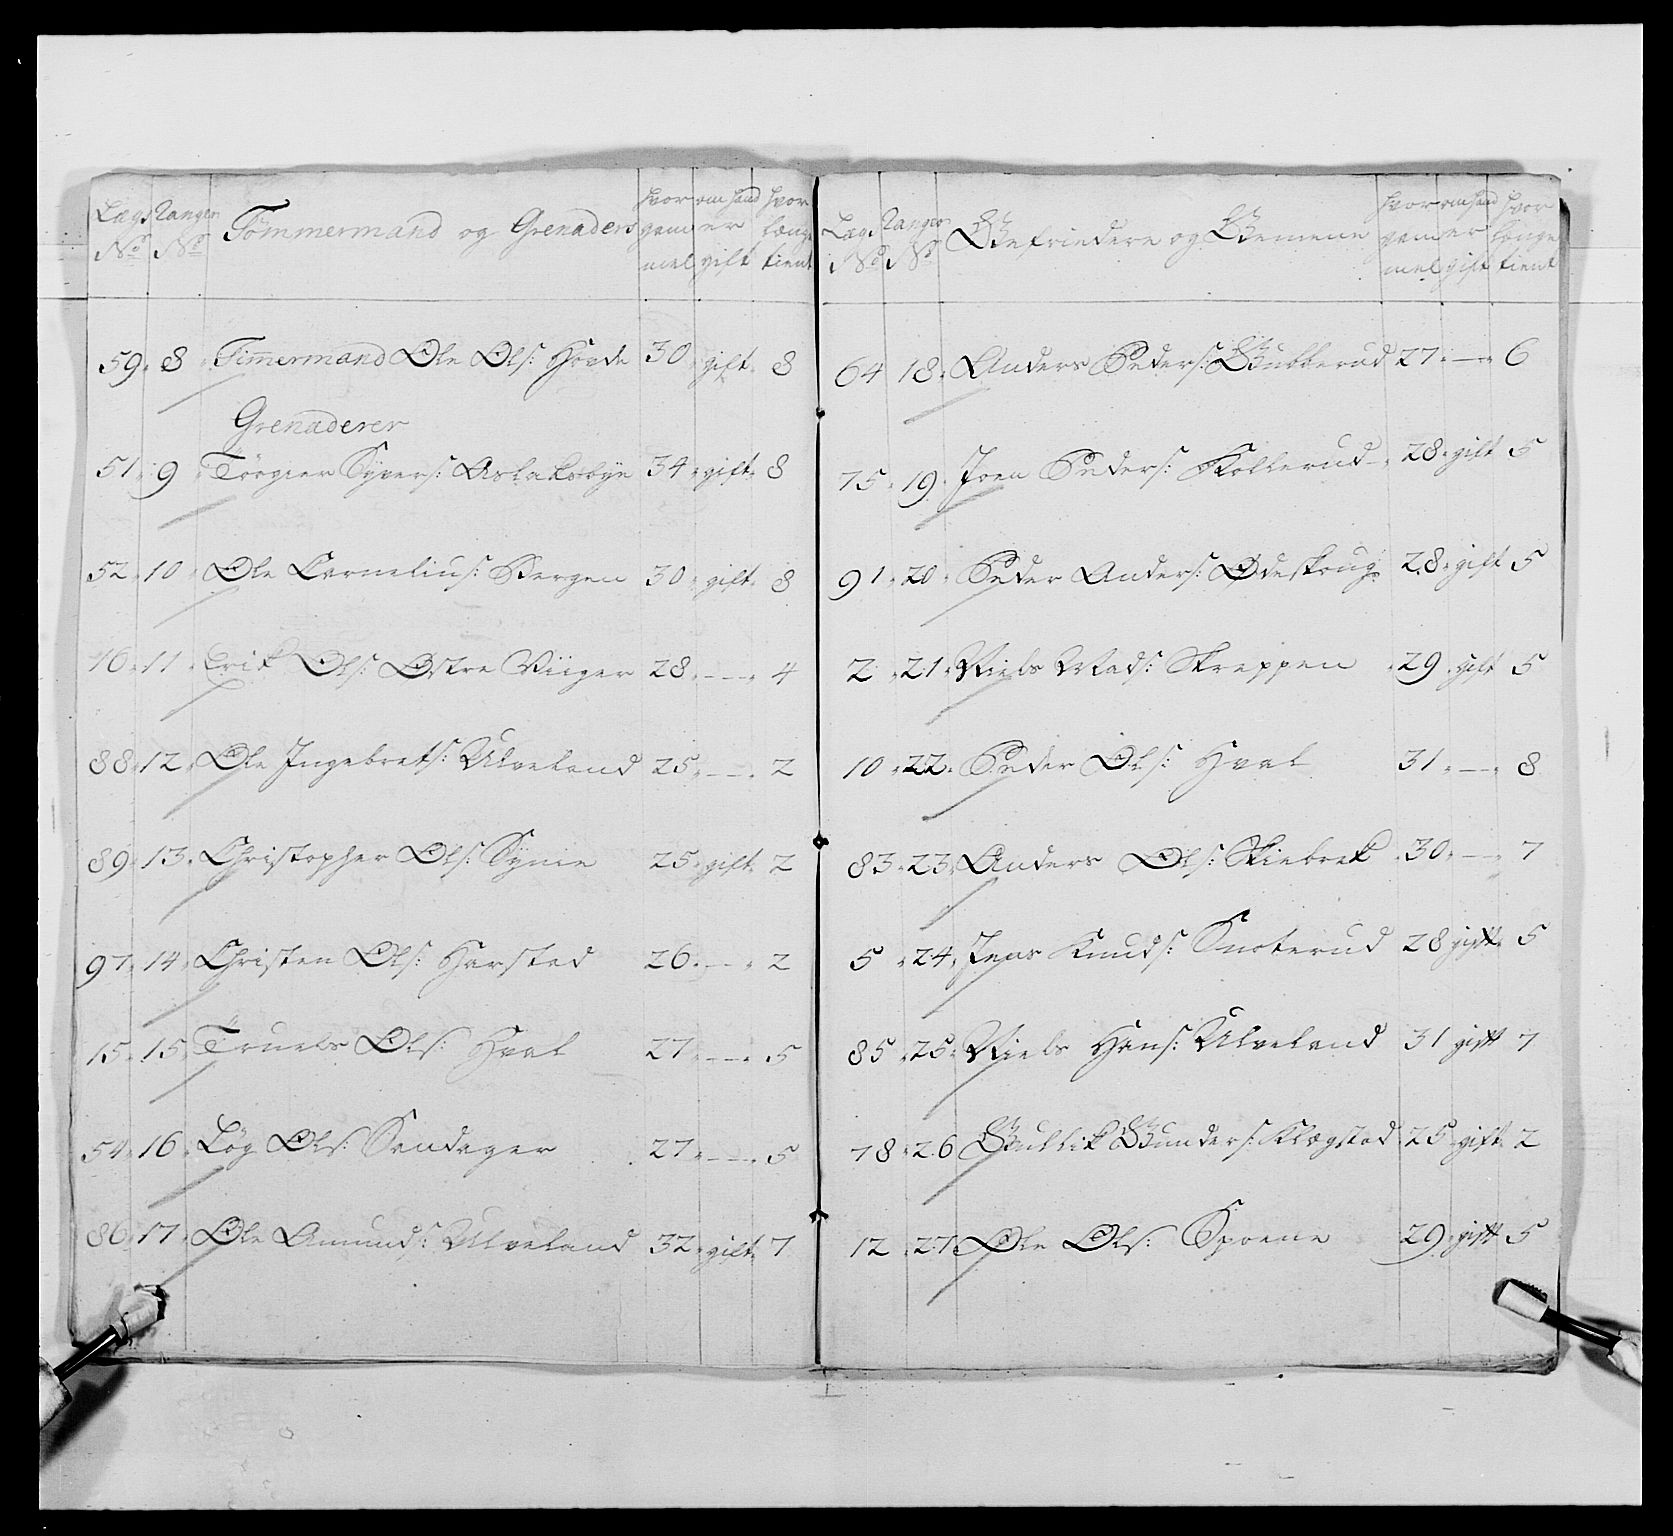 Lægs No Ranger No Tömmermand og Grenaders hvor gammel om hand er gift hvor længe tient
59. 8 Timmermand Ole Ols: Hovde 30 gift 8
Grenaderer
51. 9 Törgier Syvers: Aslaksbye 34 gift 8
52. 10 Ole Cornelius: Bergen 30 gift 8
76. 11 Erik Ols: Østre Viiger 28 - - - 4
88. 12 Ole Ingebrets: Ulveland 25 - - - 2
89. 13. Christopher Ols: 25 gift 2
97. 14 Christen Ols: Harsted 26. - - - 2
15. 15 Truels Ols: Hval 27 - - - 5
54. 16 Ols: Sandager 27 - - - 5
86. 17 Ole Amunds: Ulveland 32 gift 7
Læg No Ranger No Gefriedere og Gemene hvor gammel om hand er gift hvor længe tient
64 18. Anders Peders: Gubberud 27. - 6
75. 19. Joen Peders: Kollerud 28. gift 5
91. 20 Peder Anders: Ødeskoug 28. gift 5
2 21 Niels Mads: Skreppen 29. gift 5
10 22. Peder Ols: Hval 31. - 8
83. 23. Anders Ols: Skiebrek 30. - 7
5 24. Jens Knuds: Snoterud 28 gift 5
85. 25. Niels Hans: Ulveland 31 gift 7
78. 26 Gullik Gunders: Klægstad 25 gift 2
12 27 Ole Ols: 29. gift 5